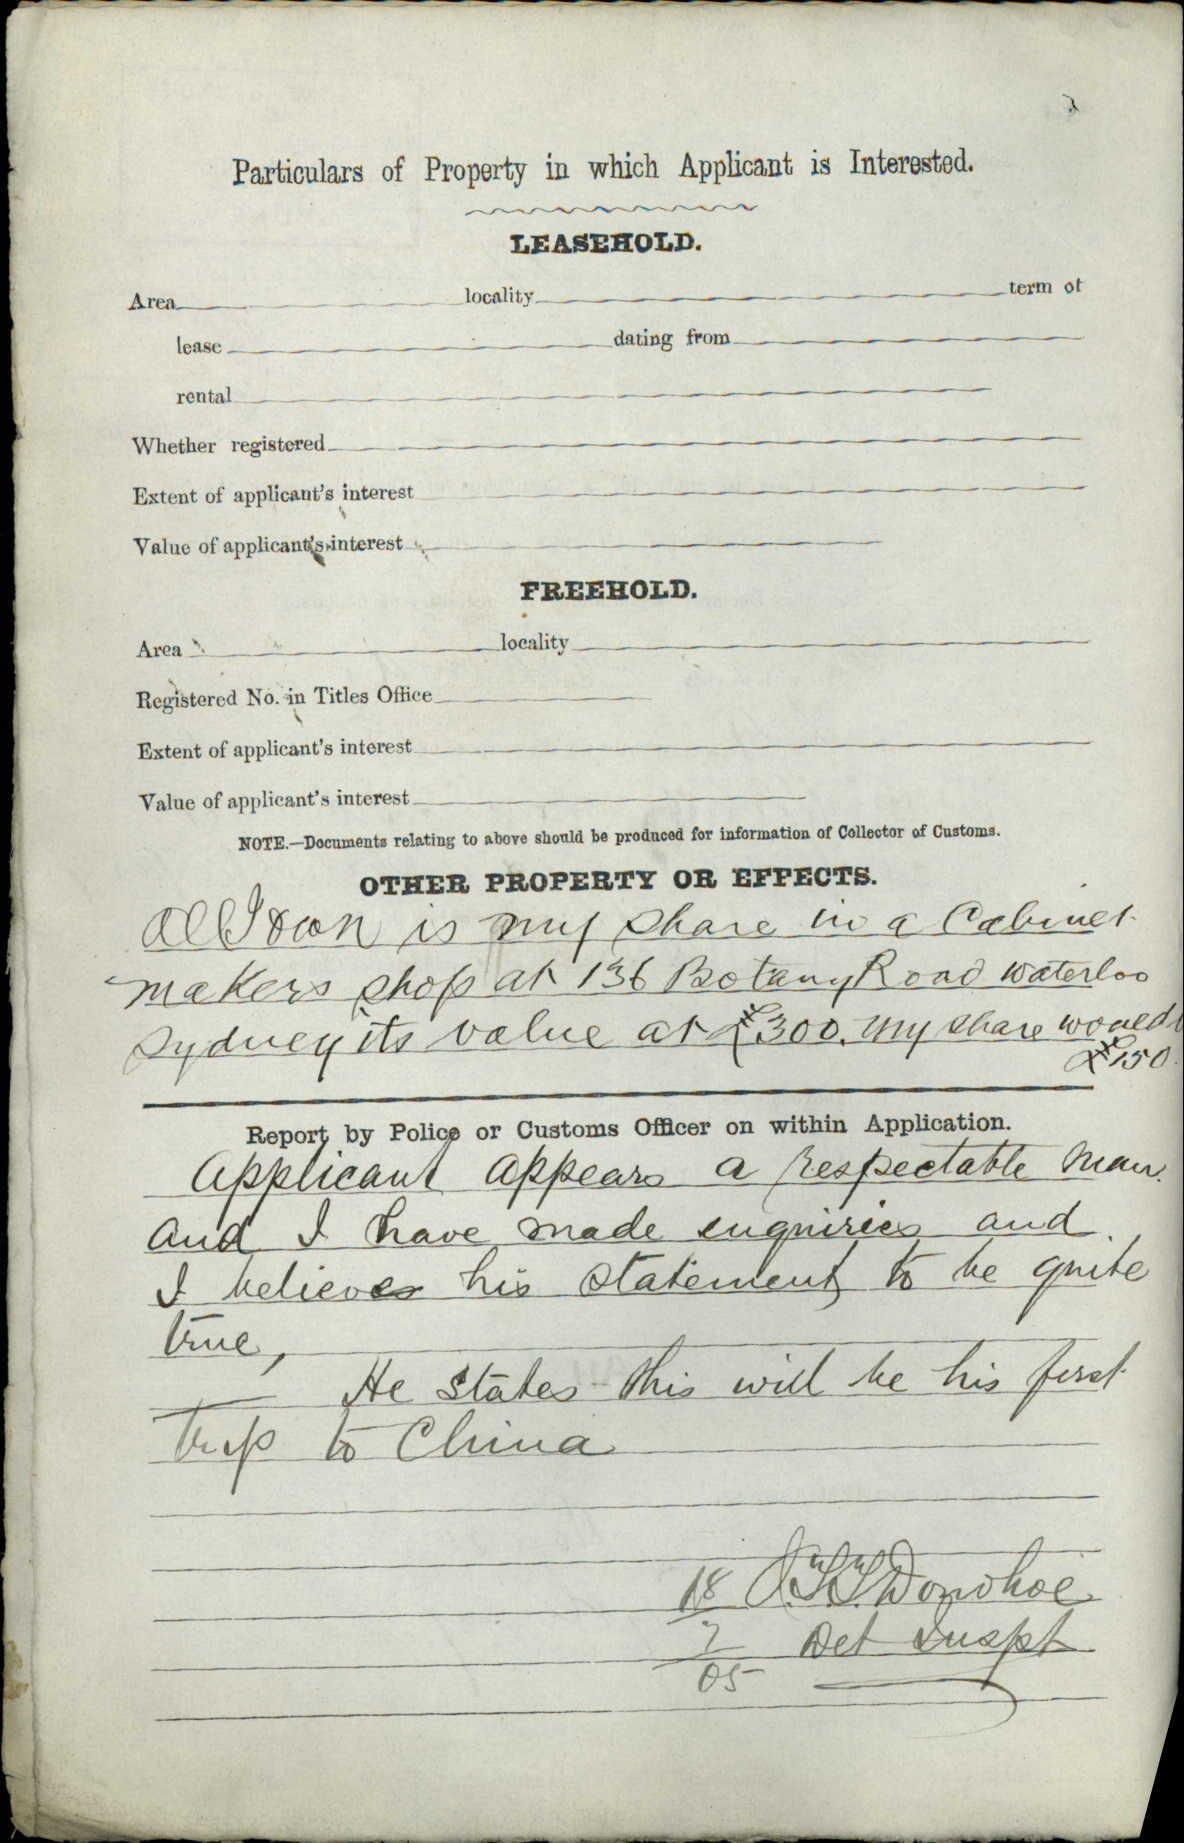 Particulars of Property in which Applicant is Interested.
LEASEHOLD.
Area locality term of
lease dating from
rental
Whether registered
Extent of applicant's interest
Value of applicant's interest
FREEHOLD.
Area locality
Registered No. in Titles Office
Extent of applicant's interest
Value of applicant's interest
NOTE.—Documents relating to above should be produced for information of Collector of Customs.
OTHER PROPERTY OR EFFECTS.
All I own is my share in a Cabinet
makers shop at 136 Botany Road Waterloo
Sydney its value at £300. my share would
£150
Report by Police or Customs Officer on within Application.
Applicant appears a respectable man.
and I have made enquiries and
I believes his statement to be quite
true,
He states this will be his first
trip to China
18 Donohoe
7 Det Inspt
05